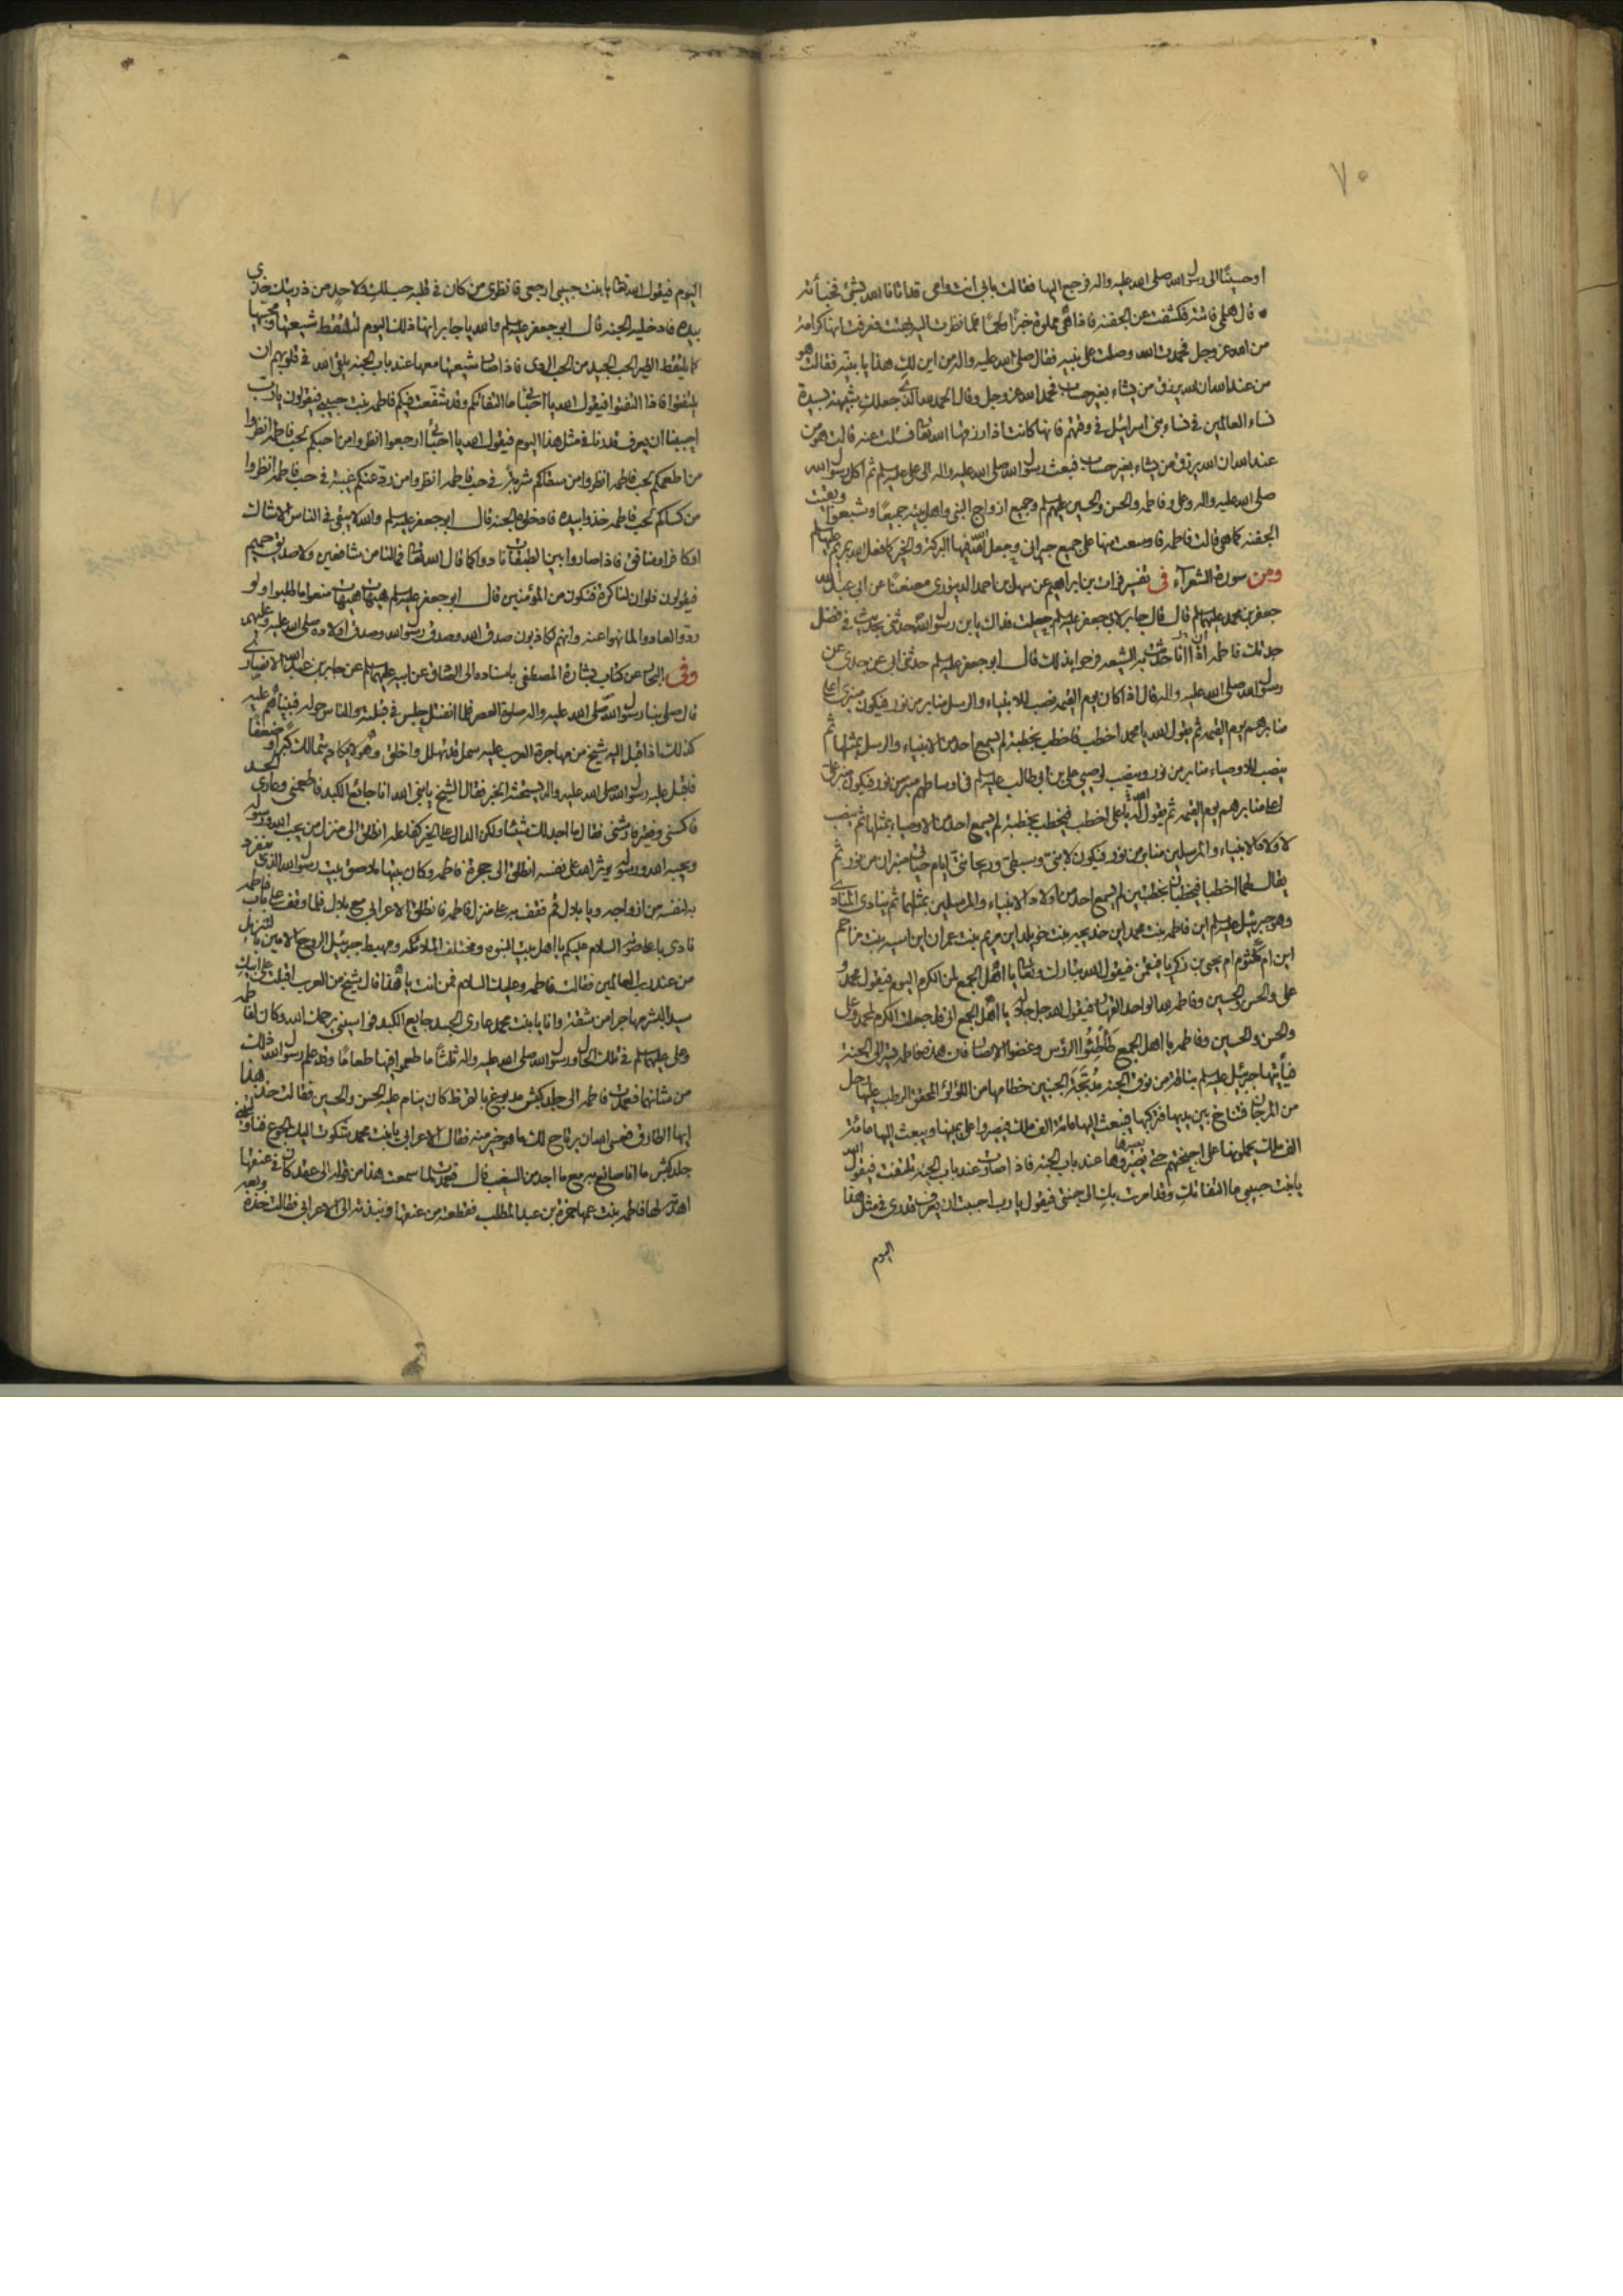 ٧٠
أو حسينًا الى رسول الله صلى الله عليه واله فرجع اليها فقالت بابي أنت وامي قد اتانا الله بشئ فخبأته
قال هلمي فاتته فكشفت عن الجفنه فاذا هي مملوة خبزًا ولحمًا فلما نظرت اليه بهتت فعرفت انها كرامة
من الله عز وجل فحمدت الله وصلت على نبيه فقال صلى الله عليه واله من اين لك هذا يا بنيه فقالت هو
من عند الله ان الله يرزق من يشاء بغير حساب فحمد الله عز وجل وقال الحمد لله الذي جعلك شبيهة بسيدة
نساء العالمين في نساء بني اسرائيل في وقتهم فانها كانت اذا رزقها الله تعالى فسئلت عنه قالت هو من
عند الله ان الله يرزق من يشاء بغير حساب فبعث رسول الله صلى الله عليه واله الى علي عليه السلم ثم اكل رسول الله
صلى الله عليه واله وعلي وفاطمه والحسن والحسين عليهم السلم وجميع ازواج النبي واهل بيته جميعًا وشبعوا وبقيت
الجفنه كما هي قالت فاطمه فاوسعت منها على جميع جيراني وجعل الله فيها البركة والخير كما فعل الله بمريم عليها سلم
ومن سورة الشعرآء في تفسير فرات بن ابراهيم عن سهل بن احمد الدينوري معنعنًا عن ابي عبد الله
جعفر بن محمد عليهما سلم قال قال جابر لابي جعفر عليه سلم جعلت فداك يا بن رسول الله حدثني بحديث في فضل
جدتك فاطمه اذا انا حدثت به الشيعه فرحوا بذلك قال ابو جعفر عليه سلم حدثني ابي عن جدي عن
رسول الله صلى الله عليه واله قال اذا كان يوم القيمه نصب للانبياء والرسل منابر من نور فيكون منبري اعلى
منابرهم يوم القيمه ثم يقول الله يا محمد أخطب فاخطب بخطبة لم يسمع احد من الانبياء والرسل بمثلها ثم
ينصب للاوصياء منابر من نور وينصب لوصيي علي بن ابي طالب عليه سلم في اوساطهم منبر من نور فيكون منبر علي
اعلى منابرهم يوم القيمه ثم يقول الله يا علي اخطب فيخطب بخطبة لم يسمع احد من الاوصياء بمثلها ثم ينصب
لاولاد الانبياء والمرسلين منابر من نور فيكون لابنيّ وسبطيّ وريحانتيّ ايام حياتي منبران من نور ثم
يقال لهما اخطبا فيخطبان بخطبتين لم يسمع احد من اولاد الانبياء والمرسلين بمثلهما ثم ينادي المنادي
وهو جبرئيل عليه سلم اين فاطمه بنت محمد اين خديجه بنت خويلد اين مريم بنت عمران اين اسيه بنت مزاحم
اين ام كلثوم ام يحيى بن زكريا فيقمن فيقول الله تبارك وتعالى يا اهل الجمع لمن الكرم اليوم فيقول محمد و
علي والحسن والحسين وفاطمه لله الواحد القهار فيقول الله جل جلاله يا اهل الجمع اني قد جعلت الكرم لمحمد وعلي
والحسن والحسين وفاطمه يا اهل الجمع طأطئوا الرؤس وغضوا الابصار فان هذه فاطمه تسير الى الجنة
فيأتيها جبرئيل عليه سلم بناقة من نوق الجنه مدبّجة الجنبين خطامها من اللؤلؤ المحقق الرطب عليها رحل
من المرجان فتناخ بين يديها فتركبها فيبعث اليها مائة الف ملك فيصيروا على يمينها ويبعث اليها مائة
الف ملك يحملونها على اجنحتهم حتى يصيروها عند باب الجنه فاذا صارت عند باب الجنه تلتفت فيقول الله
يا بنت حبيبي ما التفاتك وقد امرت بك الى جنتي فيقول يا رب احببت ان يعرف قدري في مثل هذا
اليوم
اليوم فيقول الله تعالى يا بنت حبيبي ارجعي فانظري من كان في قلبه حب لك ولاحد من ذريتك خذي
بيده فادخليه الجنه قال ابو جعفر عليه سلم والله يا جابر انها ذلك اليوم لتلتقط شيعتها ومحبيها
كما يلتقط الطير الحب الجيد من الحب الردى فاذا صار شيعتها معها عند باب الجنه يلقي الله في قلوبهم ان
يلتفتوا فاذا التفتوا فيقول الله يا احبائي ما التفاتكم وقد شفعت فيكم فاطمه بنت حبيبي فيقولون يا رب
احببنا ان يعرف قدرنا في مثل هذا اليوم فيقول الله يا احبائي ارجعوا انظروا من احبكم لحب فاطمه انظروا
من اطعمكم لحب فاطمه انظروا من سقاكم شربة في حب فاطمه انظروا من ردّ عنكم غيبة في حب فاطمه انظروا
من كساكم لحب فاطمه خذوا بيده فادخلوه الجنه قال ابو جعفر عليه سلم والله لا يبقى في الناس الا شاك
او كافر او منافق فاذا صاروا بين الطبقات نادوا كما قال الله تعالى فما لنا من شافعين ولا صديق حميم
فيقولون فلو ان لنا كرة فنكون من المؤمنين قال ابو جعفر عليه سلم هيهات هيهات منعوا ما طلبوا ولو
ردوا لعادوا لما نهوا عنه وانهم لكاذبون صدق الله وصدق رسول الله وصدق اولاده صلى الله عليه وعليهم
وفي البحار عن كتاب بشارة المصطفى باسناده الى الصادق عن ابيه عليهما سلم عن جابر بن عبد الله الانصاري
قال صلى بنا رسول الله صلى الله عليه واله صلوة العصر فلما انفتل جلس في قبلته والناس حوله فبيناهم
كذلك اذا قبل اليه شيخ من مهاجرة العرب عليه سمل قد تهلل واخلق وهو لا يكاد يتمالك كبرًا وضعفًا
فاقبل عليه رسول الله صلى الله عليه واله يستحثه الخبر فقال الشيخ يا نبي الله انا جائع الكبد فاطعمني وعاري الجسد
فاكسني وفقير فارشني فقال ما اجد لك شيئًا ولكن الدال على الخير كفاعله انطلق الى منزل من يحب الله ورسوله
ويحبه الله ورسوله يوثر الله على نفسه انطلق الى حجرة فاطمه وكان بيتها ملاصق بيت رسول الله الذي ينفرد
به لنفسه من ازواجه ويا بلال قم فقف به على منزل فاطمه فانطلق الاعرابي مع بلال فلما وقف على باب فاطمه
نادى باعلى صوته السلام عليكم يا اهل بيت النبوه ومختلف الملائكه ومهبط جبرئيل الروح الامين بالتنزيل
من عند رب العالمين فقالت فاطمه وعليك السلام فمن انت يا هذا قال شيخ من العرب اقبلت على ابيك
سيد البشر مهاجرا من شقة وانا يا بنت محمد عاري الجسد جايع الكبد فواسيني يرحمك الله وكان لفاطمه
وعلي عليهما سلم في تلك الحال ورسول الله صلى الله عليه واله ثلثًا ما طعموا فيها طعامًا وقد علم رسول الله ذلك
من شانهما فعمدت فاطمه الى جلد كبش مدبوغ بالقرظ كان ينام عليه الحسن والحسين فقالت خذ هذا
ايها الطارق فعسى الله ان يرتاح لك ما هو خير منه فقال الاعرابي يا بنت محمد شكوت اليك الجوع فناولتني
جلد كبش ما انا صانع به مع ما اجد من السغب قال فعمدت لما سمعت هذا من قوله الى عقد كان في عنقها
اهدته لها فاطمه بنت عمها حمزة بن عبد المطلب فقطعته من عنقها ونبذته الى الاعرابي فقالت خذه وبعه